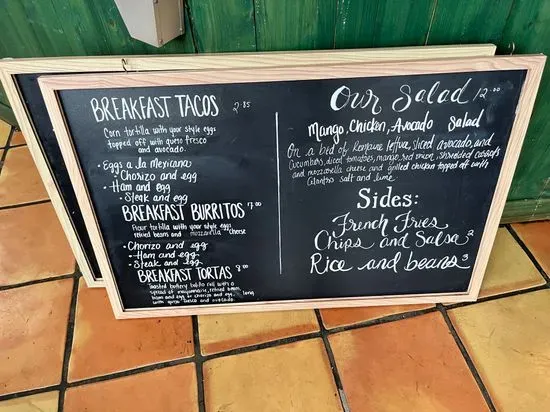 BREAKFAST TACOS 2.85
Corn tortilla with your style eggs
topped off with queso fresco
and avocado.
- Eggs a la mexicana
- Chorizo and egg
- Ham and egg
- Steak and egg
BREAKFAST BURRITOS 7.00
Flour tortilla with your style eggs
refried beans and mozzarella cheese
- Chorizo and egg
- Ham and egg
- Steak and egg
BREAKFAST TORTAS 8.00
Toasted buttery roll with a
spread of mayonnaise, refried beans,
ham and egg or chorizo and egg. along
with queso fresco and avocado.
Our Salad 12.00
Mango, Chicken, Avocado Salad
On a bed of Romaine lettuce, sliced avocado, and
cucumbers, diced tomatoes, mango, red onion, shredded carrots
and mozzarella cheese and grilled chicken topped off with
Cilantro salt and lime.
Sides:
French Fries
Chips and Salsa 2
Rice and beans 3